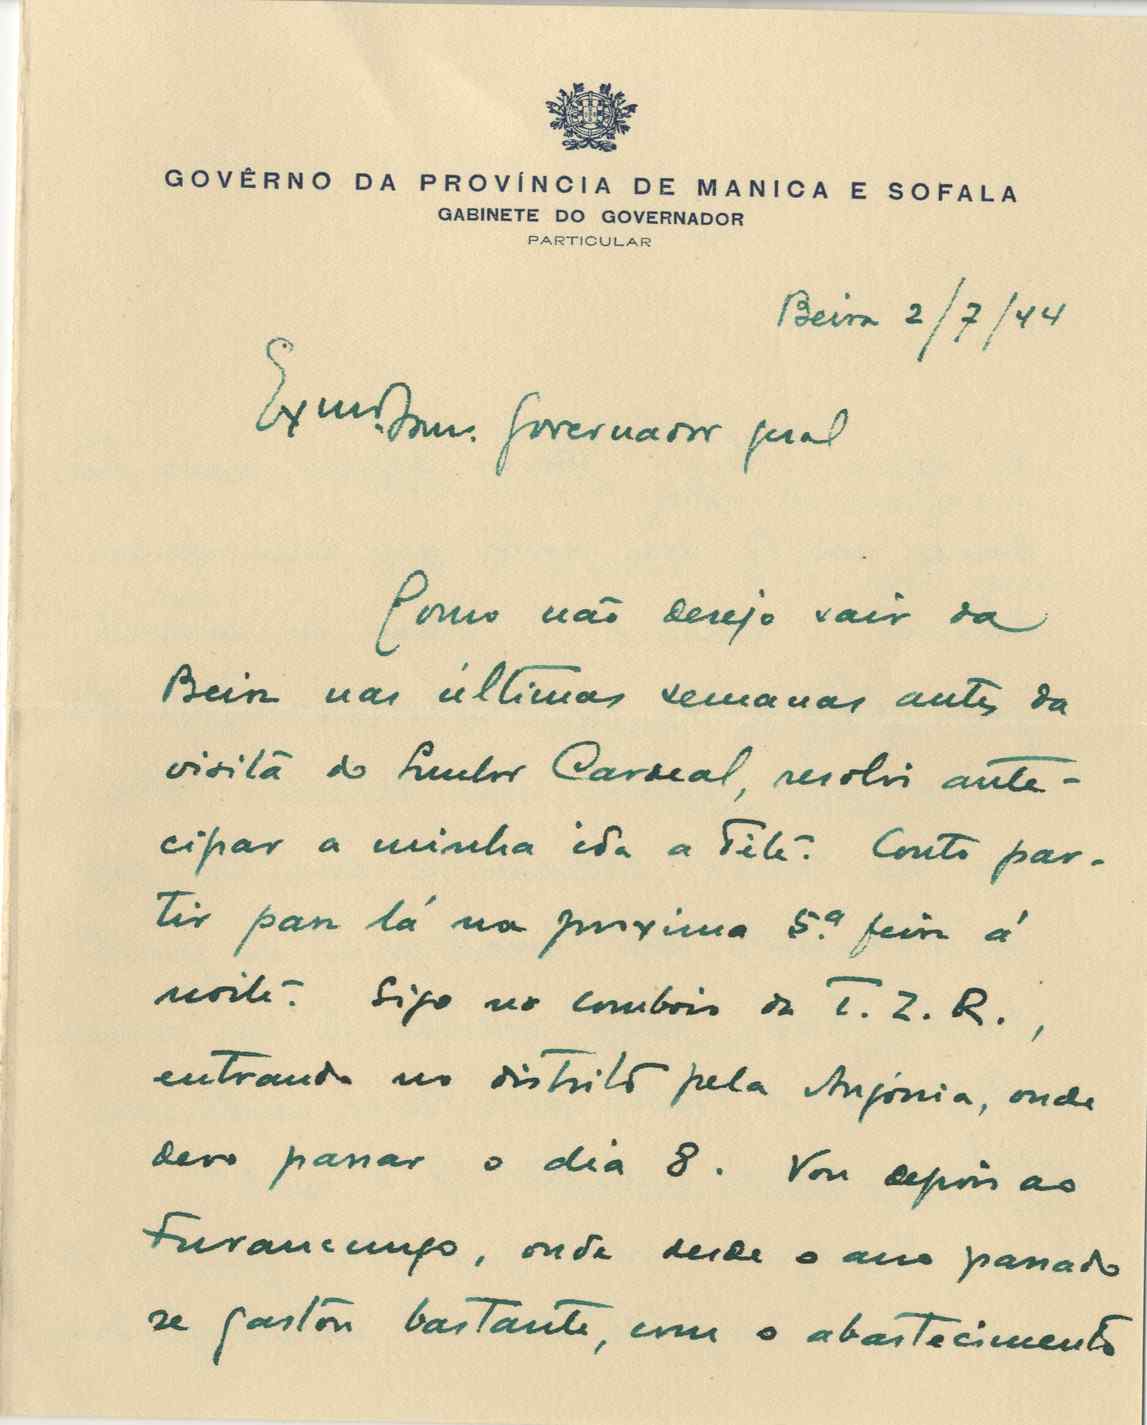 GOVÊRNO DA PROVÍNCIA DE MANICA E SOFALA
GABINETE DO GOVERNADOR
PARTICULAR
Beira 2/7/44
Exmo. Snr. Governador geral
Como não desejo sair da
Beira nas últimas semanas antes da
visita do Senhor Cardeal, resolvi ante-
cipar a minha ida a Tete. Conto par-
tir para lá na proxima 5.ª feira á
noite. Sigo no comboio da T. Z. R.,
entrando no distrito pela Angónia, onde
devo passar o dia 8. Vou depois ao
Furancungo, onde desde o ano passado
se gastou bastante, com o abastecimento